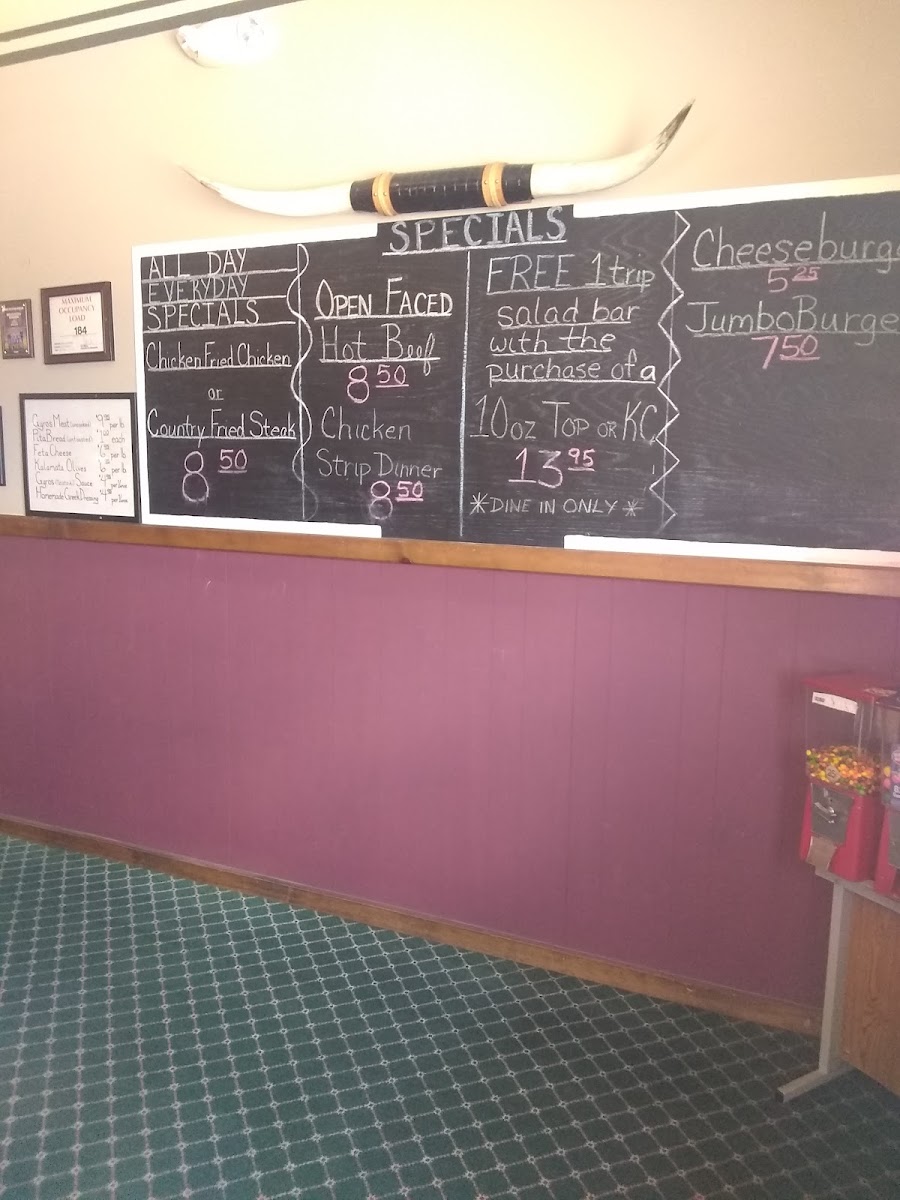 SPECIALS
ALL DAY
EVERYDAY
SPECIALS
Chicken Fried Chicken
or
Country Fried Steak
8 50
OPEN FACED
Hot Beef
8 50
Chicken
Strip Dinner
8 50
FREE 1 trip
salad bar
with the
purchase of a
10oz TOP OR KC
13 95
*DINE IN ONLY*
Cheeseburge
5 25
JumboBurge
7 50
MAXIMUM
OCCUPANCY
LOAD
184
Gyros Meat per lb
Pita Bread each
Feta Cheese per lb
Kalamata Olives per lb
Gyros Sauce
Homemade Greek Dressing